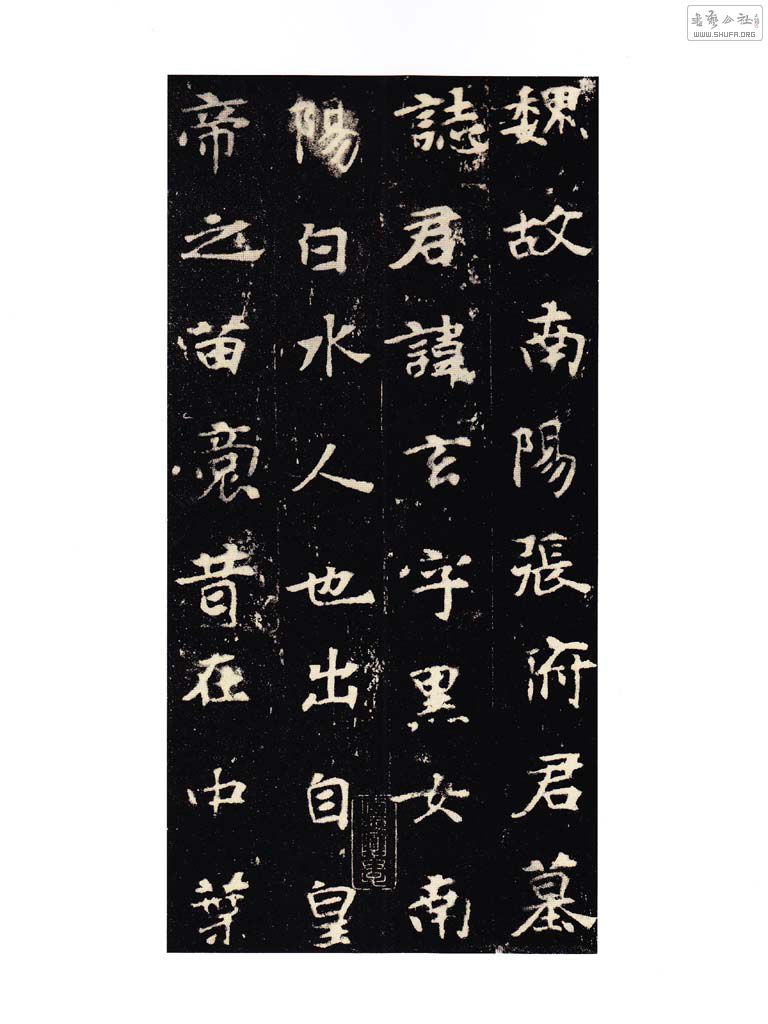 魏故南陽張府君墓
誌君諱玄字黑女南
陽白水人也出自皇
帝之苗裔昔在中葉
书艺公社
WWW.SHUFA.ORG